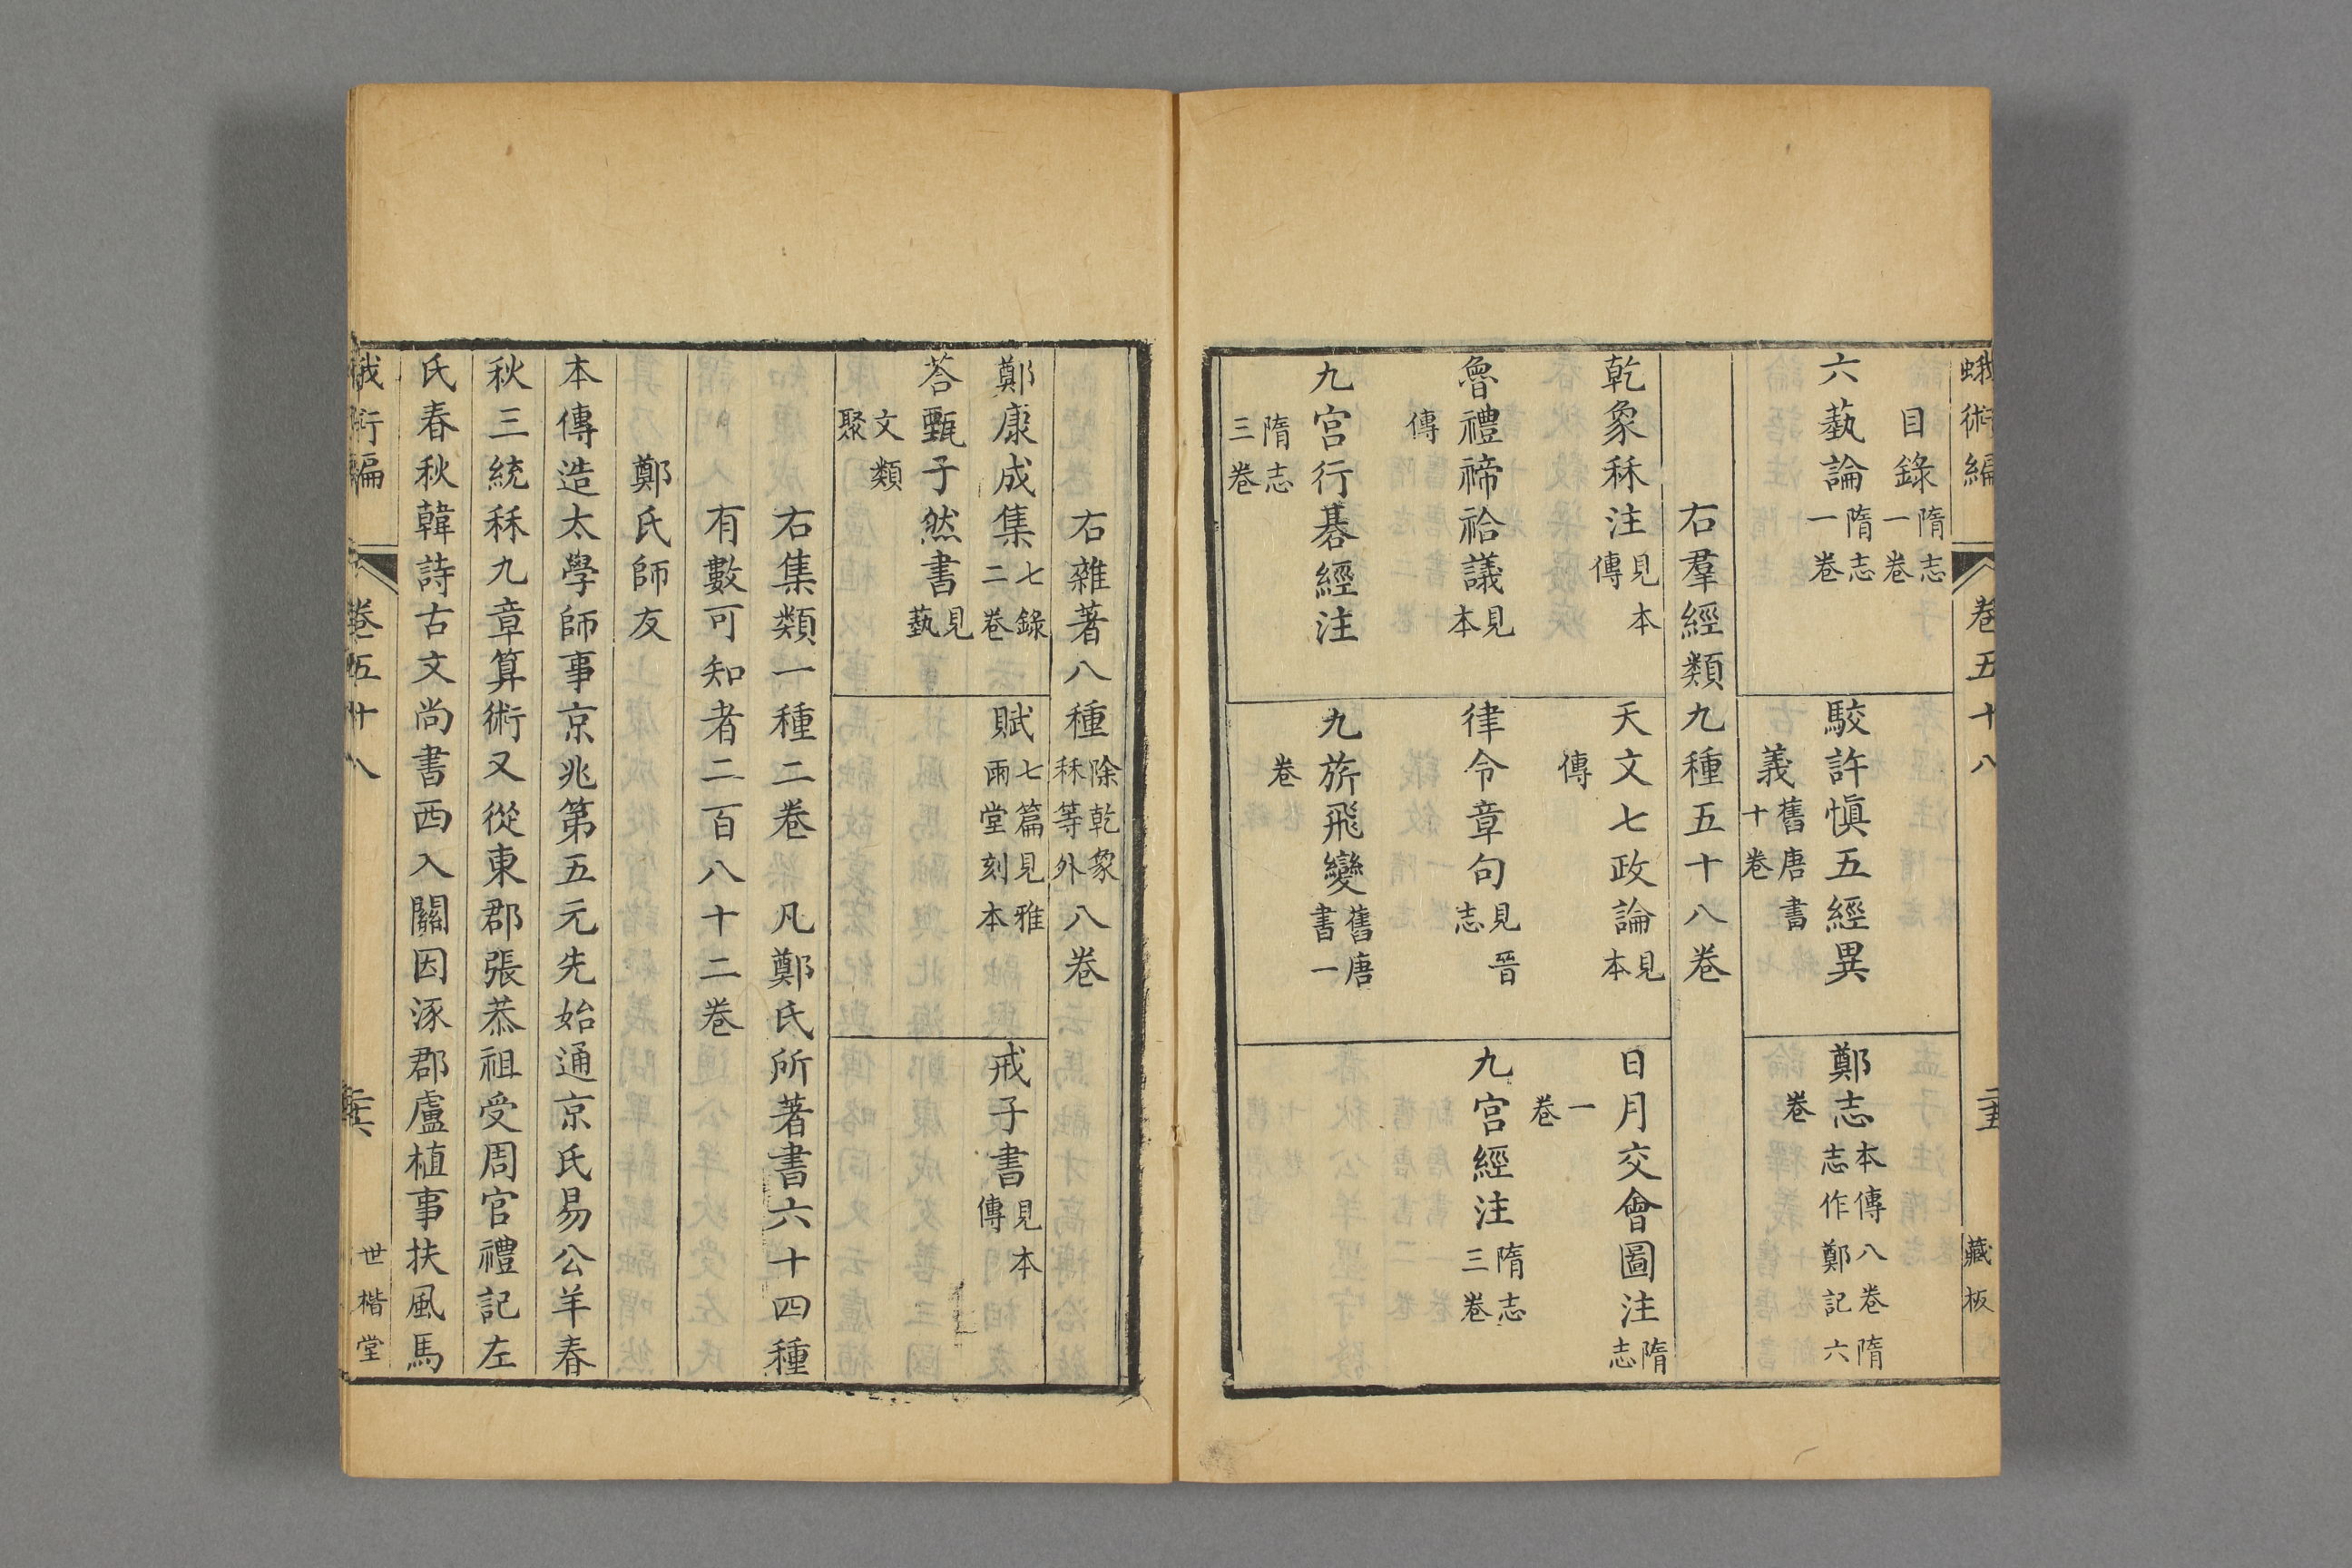 蛾術編 卷五十八 藏板
目錄 隋志一卷
六蓺論 隋志一卷
駮許慎五經異
義 舊唐書十卷
鄭志 本傳八卷隋志作鄭記六
卷
右羣經類九種五十八卷
乾象秝注 見本傳
天文七政論 見本
傳
日月交會圖注 隋志
一卷
魯禮禘祫議 見本
傳
律令章句 見晉志
九宮經注 隋志三卷
九宮行棊經注
隋志三卷
九旂飛變 舊唐書一
卷
右雜著八種 除乾象秝等外 八卷
鄭康成集 七錄二卷
賦 七篇見雅雨堂刻本
戒子書 見本傳
荅甄子然書 見蓺
文類聚
右集類一種二卷 凡鄭氏所著書六十四種
有數可知者二百八十二卷
鄭氏師友
本傳造太學師事京兆第五元先始通京氏易公羊春
秋三統秝九章算術又從東郡張恭祖受周官禮記左
氏春秋韓詩古文尚書西入關因涿郡盧植事扶風馬
蛾術編 卷五十八 世楷堂